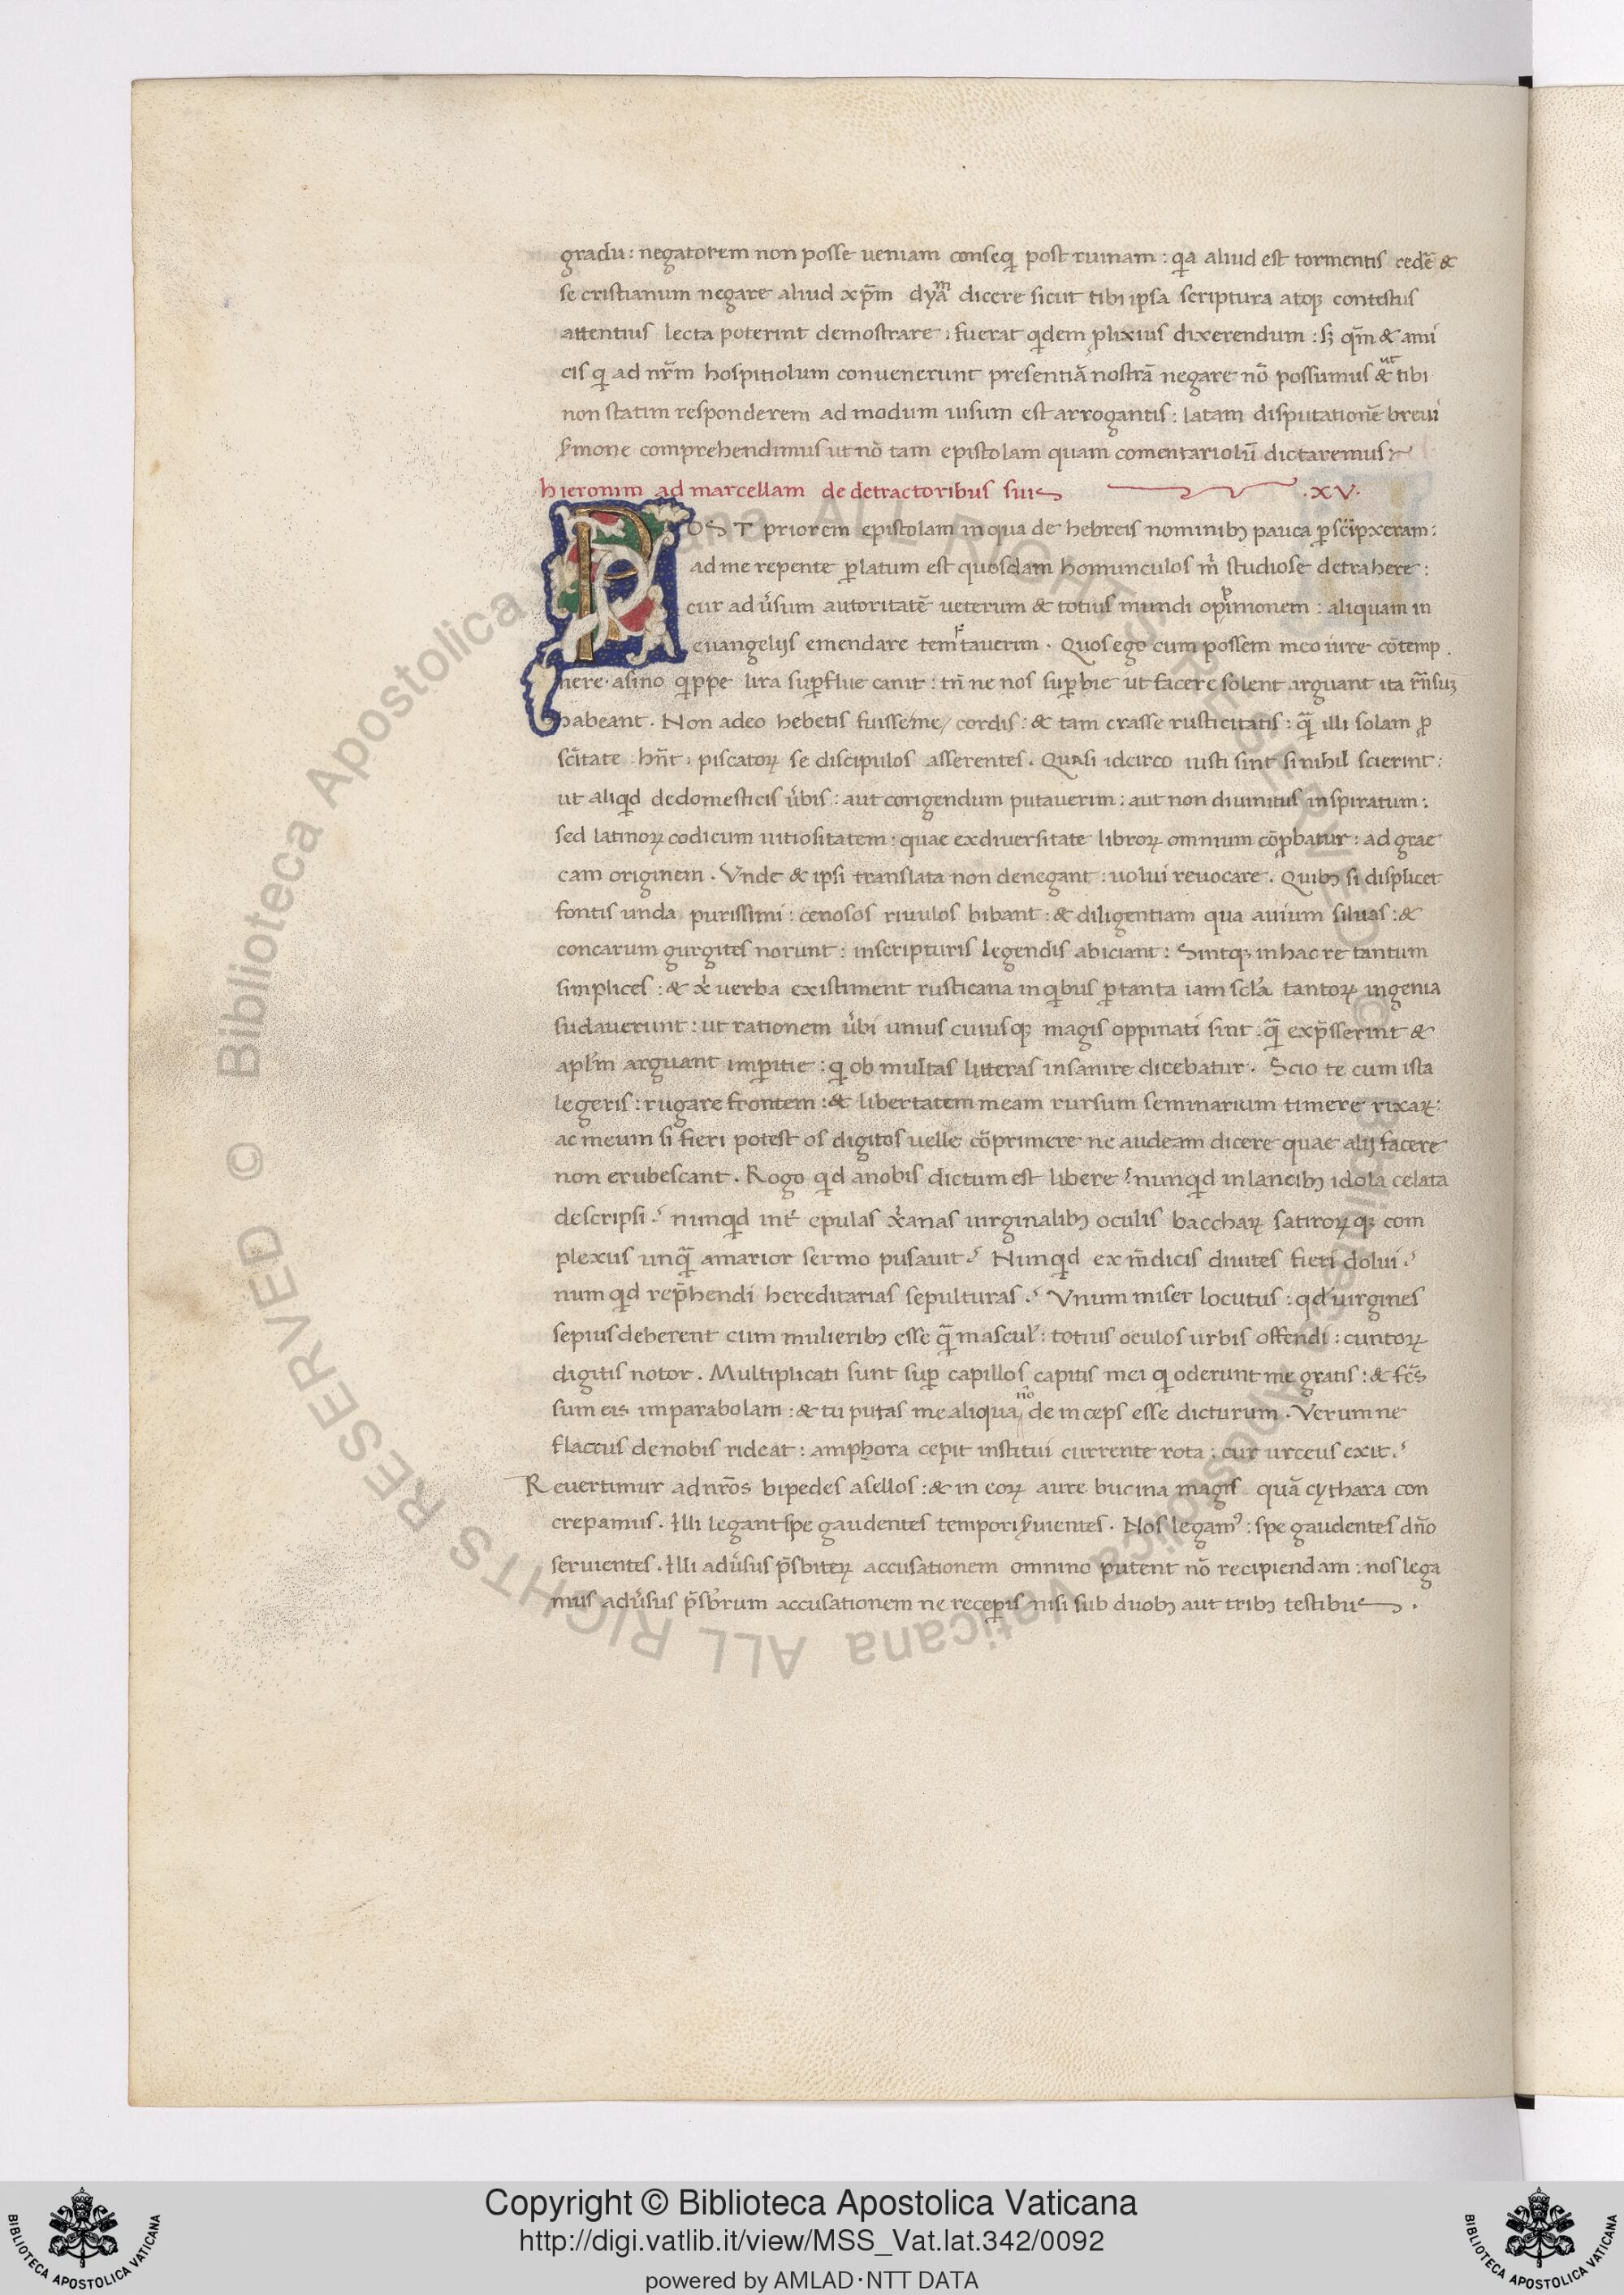 gradu : negatorem non posse ueniam conseq̃ post ruinam : q̃a aliud est tormentis cedẽ &
se cristianum negare aliud xp̃m dyãm dicere sicut tibi ipsa scriptura atqꝫ contestus
attentius lecta poterint demostrare . fuerat q̃dem ꝓlixius dixerendum : sꝫ qm̃ & ami
cis q̃ ad nr̃m hospitiolum conuenerunt presentiã nostrã negare nõ possumus & ut tibi
non statim responderem ad modum uisum est arrogantis : latam disputationẽ breui
s̃mone comprehendimus ut nõ tam epistolam quam comentariolũ dictaremus
hieronim ad marcellam de detractoribus suis .XV.
POST priorem epistolam in qua de hebreis nominibꝫ pauca ꝑscripxeram :
ad me repente ꝑlatum est quosdam homunculos m̃ studiose detrahere :
cur adũsum autoritatẽ ueterum & totius mundi oppinionem : aliquam in
euangelijs emendare temptauerim . Quos ego cum possem meo iure cõtemp
nere . asino q̃ppe lira suꝑflue canit : tñ ne nos suꝑbie ut facere solent arguant ita rñsuꝫ
habeant . Non adeo hebetis fuisse me cordis : & tam crasse rusticitatis : q̃ illi solam ꝓ
sc̃itate hñt . piscatoꝝ se discipulos asserentes . Quasi idcirco iusti sint si nihil scierint :
ut aliq̃d de domesticis ũbis : aut corigendum putauerim : aut non diuinitus inspiratum :
sed latinoꝝ codicum uitiositatem : quae ex diuersitate libroꝝ omnium cõꝓbatur : ad grae
cam originem . Vnde & ipsi translata non denegant : uolui reuocare . Quibꝫ si displicet
fontis unda purissimi : cenosos riuulos bibant : & diligentiam qua auium siluas : &
concarum gurgites norunt : in scripturis legendis abiciant : Sintqꝫ in hac re tantum
simplices : & x̃ uerba existiment rusticana in q̃bus ꝑ tanta iam scl̃a tantoꝝ ingenia
sudauerunt : ut rationem ũbi unius cuiusqꝫ magis oppinati sint : q̃ exp̃sserint &
apl̃m arguant imꝑitie : q̃ ob multas litteras insanire dicebatur . Scio te cum ista
legeris : rugare frontem : & libertatem meam rursum seminarium timere rixaꝝ :
ac meum si fieri potest os digitos uelle cõprimere ne audeam dicere quae alij facere
non erubescant . Rogo q̃d a nobis dictum est libere ? nunq̃d in lancibꝫ idola celata
descripsi ? nunq̃d int̃ epulas x̃anas uirginalibꝫ oculis bacchaꝝ satiroꝝqꝫ com
plexus unq̃ amarior sermo pusauit ? Nunq̃d ex m̃dicis diuites fieri dolui ?
num q̃d rep̃hendi hereditarias sepulturas ? Vnum miser locutus : qd̃ uirgines
sepius deberent cum mulieribꝫ esse q̃ mascul̃ : totius oculos urbis offendi : cuntoꝝ
digitis notor . Multiplicati sunt suꝑ capillos capitis mei q̃ oderunt me gratis : & fc̃s
sum eis in parabolam : & tu putas me aliqua nõ deinceps esse dicturum . Verum ne
flaccus de nobis rideat : amphora cepit institui currente rota : cur urceus exit ?
Reuertimur ad nr̃os bipedes asellos : & in eoꝝ aure bucina magis quã cythara con
crepamus . Illi legant spe gaudentes tempori s̃uientes . Nos legamꝰ : spe gaudentes dño
seruientes . Illi adũsus p̃sbiteꝝ accusationem omnino putent nõ recipiendam : nos lega
mus adũsus p̃sb̃rum accusationem ne receꝑis nisi sub duobꝫ aut tribꝫ testibus .
© Biblioteca Apostolica Vaticana ALL RIGHTS RESERVED
© Biblioteca Apostolica Vaticana ALL RIGHTS RESERVED
Copyright © Biblioteca Apostolica Vaticana
http://digi.vatlib.it/view/MSS_Vat.lat.342/0092
powered by AMLAD·NTT DATA
BIBLIOTECA APOSTOLICA VATICANA
BIBLIOTECA APOSTOLICA VATICANA